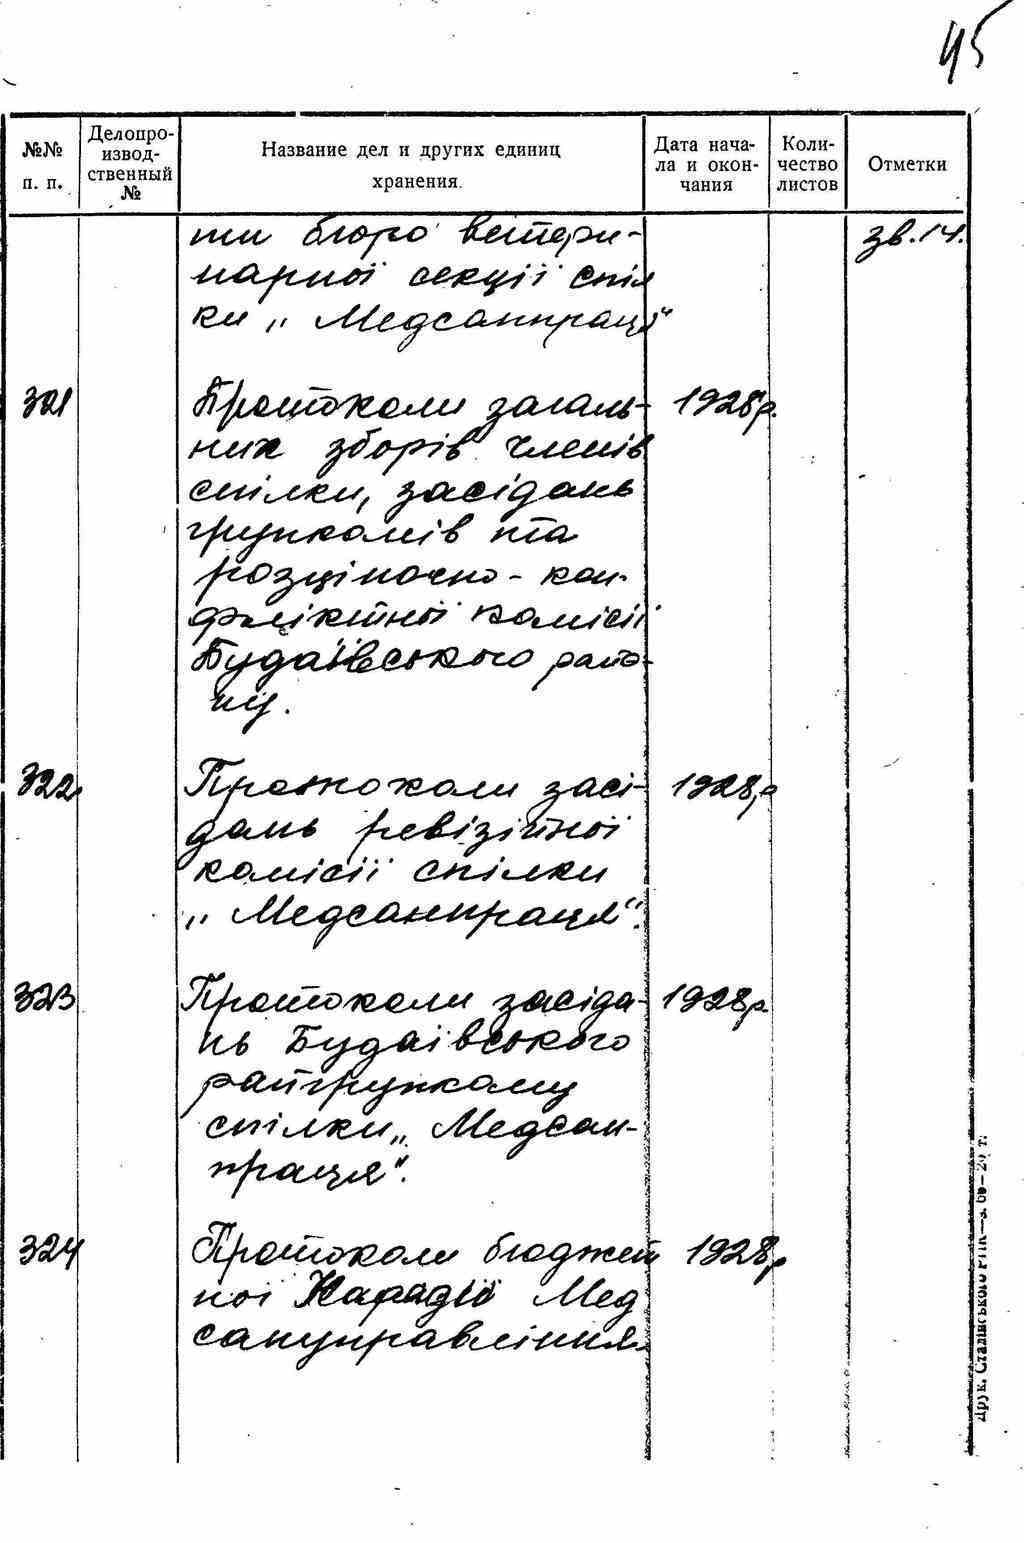 45
№№ п. п.
Делопро-
извод-
ственный
№
Название дел и других единиц
хранения.
Дата нача-
ла и окон-
чания
Коли-
чество
листов
Отметки
ти бюро ветери- зв.14.
нарної секції спіл
ки „Медсанпраця"
321 Протоколи загаль- 1928р.
них зборів членів
спілки, засідань
групкомів та
розціночно-кон-
фліктної комісії
Будаївського райо-
ну.
322 Протоколи засі- 1928р
дань ревізійної
комісії спілки
„Медсанпраця".
323 Протоколи засіда- 1928р.
нь Будаївського
райгрупкому
спілки „Медсан-
праця".
324 Протоколи бюджет 1928р
ної Наради Мед
сануправління.
Друк. Сталінського